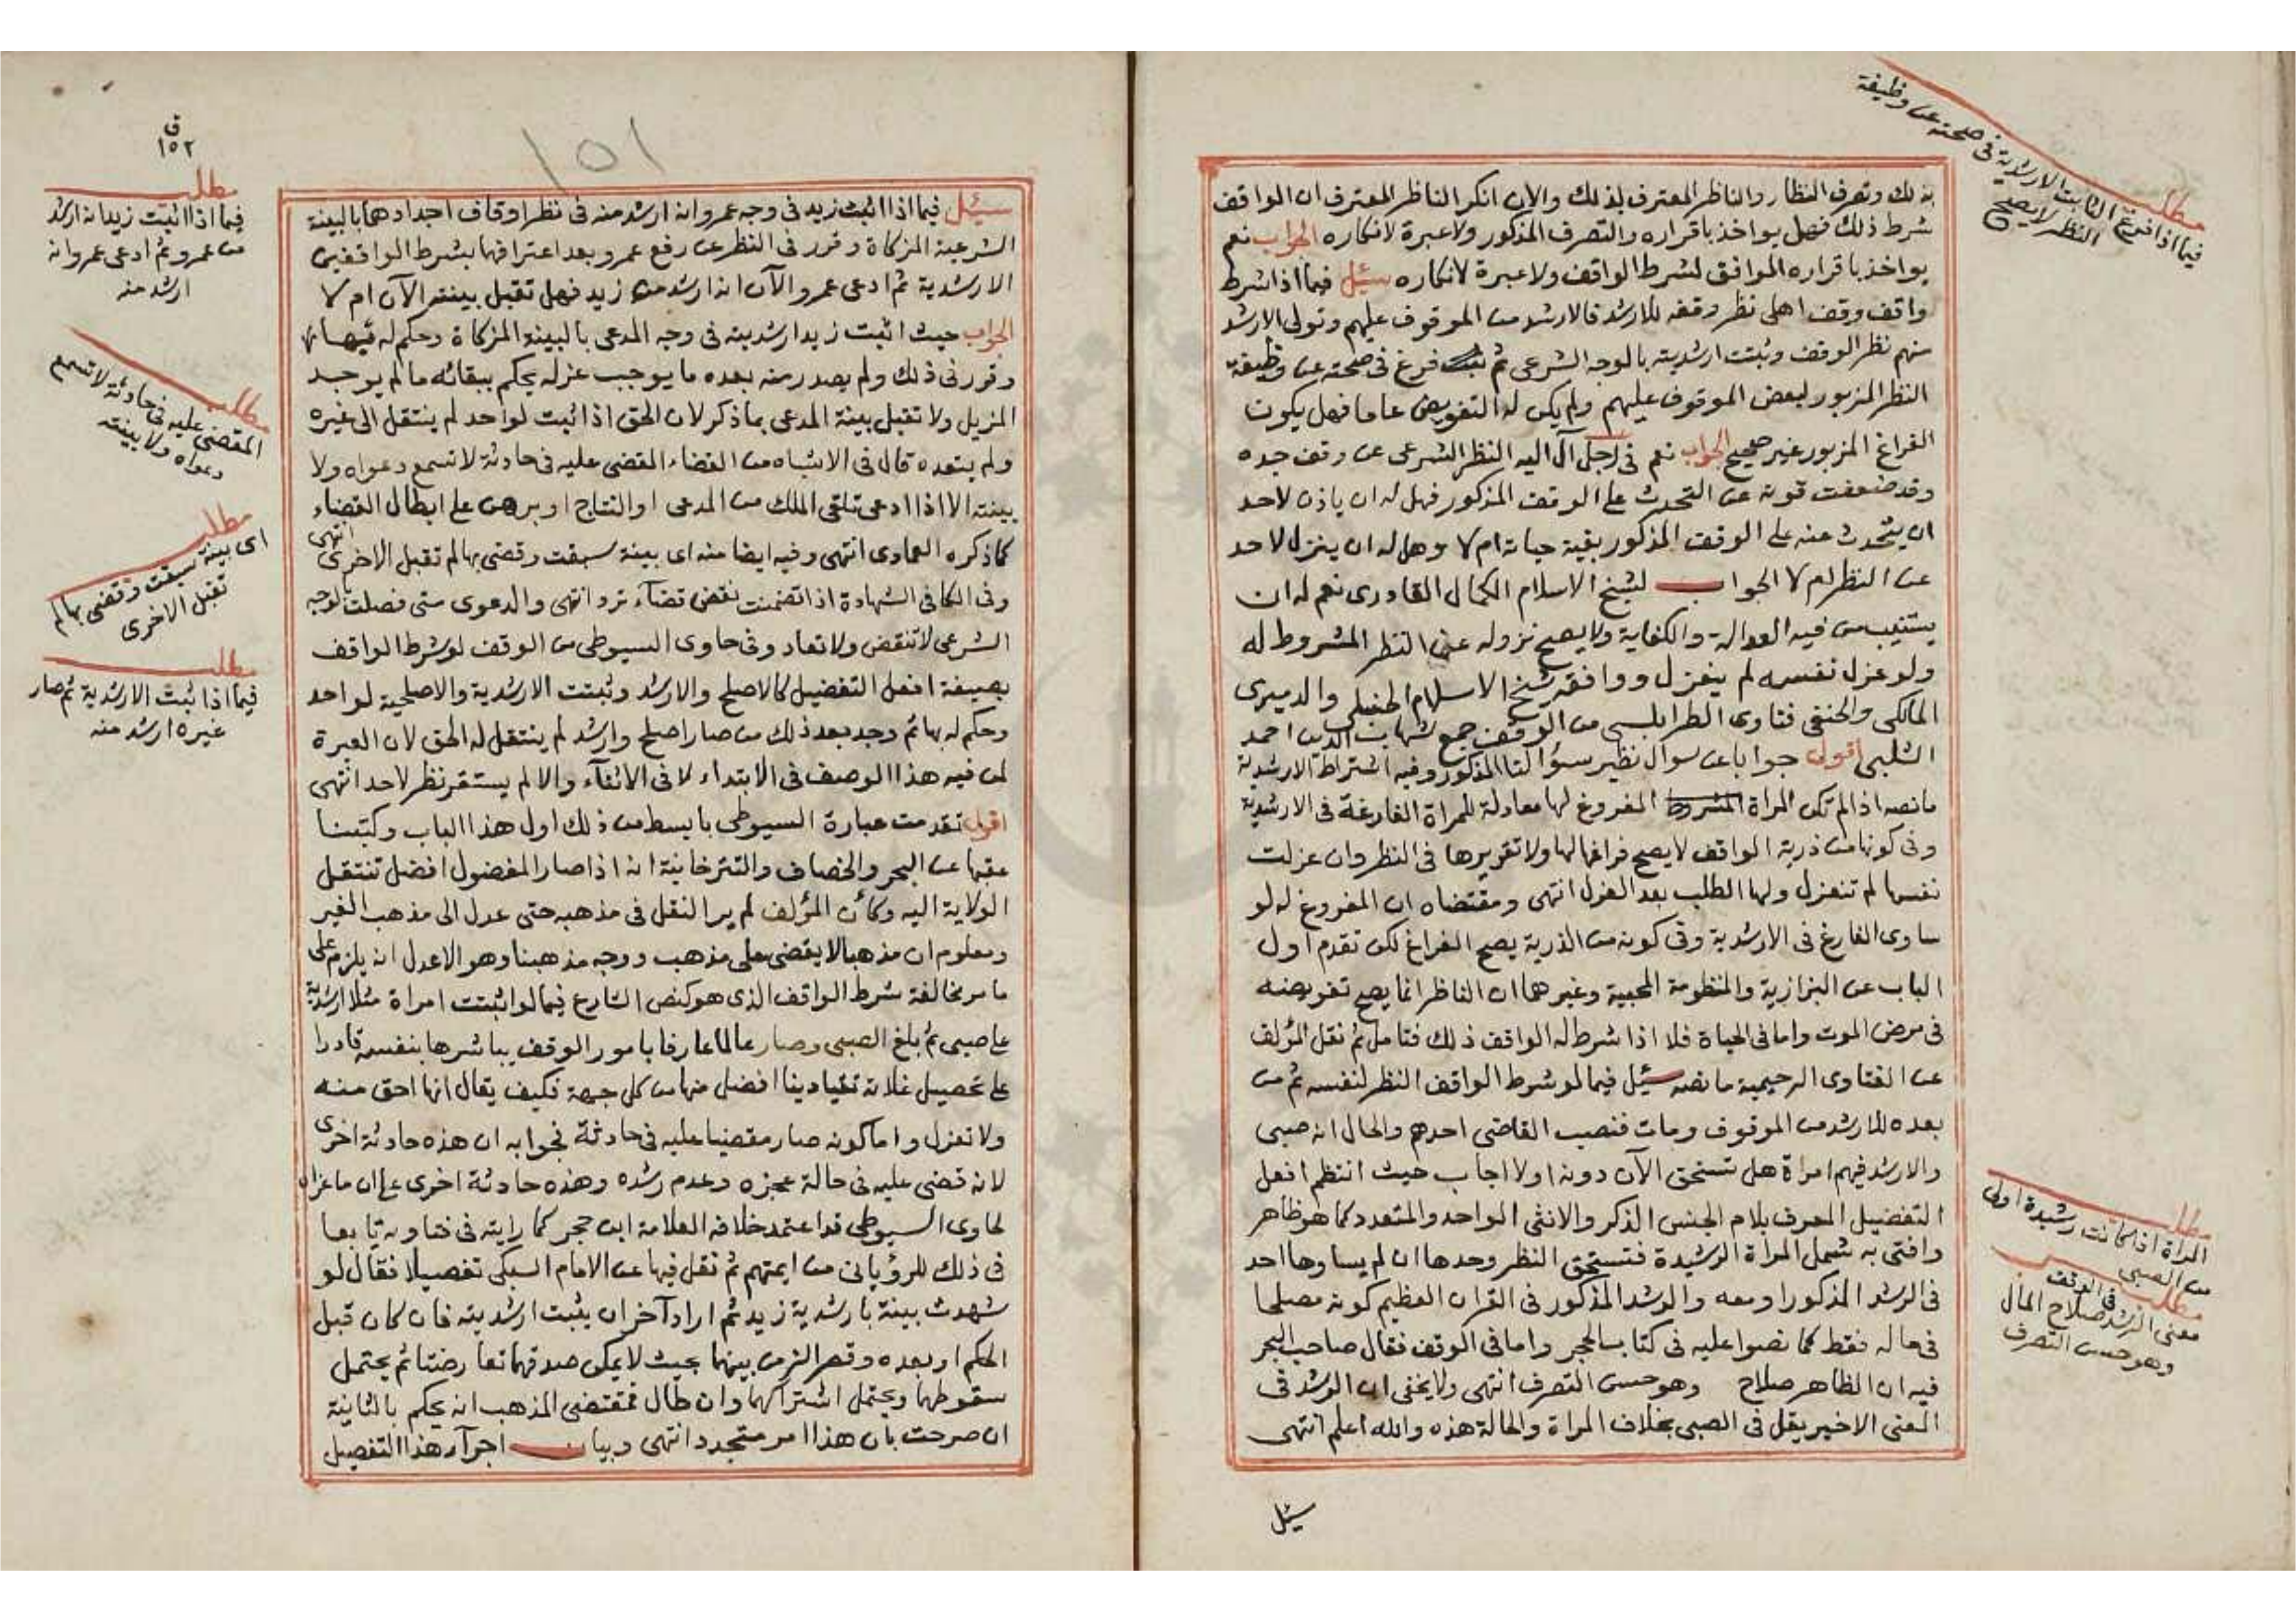 بذلك وتصرف النظار والناظر المعترف بذلك والان انكر الناظر المعترف ان الواقف
شرط ذلك فهل يواخذ باقراره والتصرف المذكور ولا عبرة لانكاره الجواب نعم
يواخذ باقراره الموافق لشرط الواقف ولا عبرة لانكاره سئل فيما اذا شرط
واقف وقف اهلى نظر وقفه للارشد فالارشد من الموقوف عليهم وتولى الارشد
منهم نظر الوقف وثبتت ارشديته بالوجه الشرعى ثم فرغ فى صحته عن وظيفة
النظر المزبور لبعض الموقوف عليهم ولم يكن له التفويض عاما فهل يكون
الفراغ المزبور غير صحيح الجواب نعم فى رجل آل اليه النظر الشرعى عن وقف جده
وقد ضعفت قوته عن التحدث على الوقف المذكور فهل له ان ياذن لاحد
ان يتحدث عنه على الوقف المذكور بقية حياته ام لا وهل له ان ينزل لاحد
عن النظر ام لا الجواب لشيخ الاسلام الكمال القادرى نعم له ان
يستنيب من فيه العدالة والكفاية ولا يصح نزوله عن النظر المشروط له
ولو عزل نفسه لم ينعزل ووافقه شيخ الاسلام الحنبلى والدميرى
المالكى والحنفى فتاوى الطرابلسى من الوقف جمع شهاب الدين احمد
الشلبى اقول جوابا عن سوال نظير سؤالنا المذكور وفيه اشتراط الارشدية
ما نصه اذا لم تكن المراة المفروغ لها معادلة للمراة الفارغة فى الارشدية
وفى كونها من ذرية الواقف لا يصح فراغها لها ولا تقريرها فى النظر وان عزلت
نفسها لم تنعزل ولها الطلب بعد العزل انتهى ومقتضاه ان المفروغ له لو
ساوى الفارغ فى الارشدية وفى كونه من الذرية يصح الفراغ لكن تقدم اول
الباب عن البزازية والمنظومة المحبية وغيرهما ان الناظر انما يصح تفويضه
فى مرض الموت واما فى الحياة فلا اذا شرط له الواقف ذلك فتامل ثم نقل المؤلف
عن الفتاوى الرحيمية ما نصه سئل فيما لو شرط الواقف النظر لنفسه ثم من
بعده للارشد من الموقوف ومات فنصب القاضى احدهم والحال انه صبى
والارشد فيهم امراة هل تستحق الآن دونه اولا اجاب حيث انتظم افعل
التفضيل المعرف بلام الجنس الذكر والانثى الواحد والمتعدد كما هو ظاهر
وافتى به شمل المراة الرشيدة فتستحق النظر وحدها ان لم يساوها احد
فى الرشد المذكور او معه والرشد المذكور فى القران العظيم كونه مصلحا
فى ماله فقط كما نصوا عليه فى كتاب الحجر واما فى الوقف فقال صاحب البحر
فيه ان الظاهر صلاح وهو حسن التصرف انتهى ولا يخفى ان الرشد فى
المعنى الاخير يقل فى الصبى بخلاف المراة والحالة هذه والله اعلم انتهى
سئل
مطلب
فيما اذا فرغ الثابت الارشدية فى صحته عن وظيفة
النظر لا يصح
مطلب
المراة اذا كانت رشيدة اولى
من الصبى
مطلب فى الوقف
معنى الرشد صلاح المال
وهو حسن التصرف
١٥١
ق
١٥٢
سئل فيما اذا اثبت زيد فى وجه عمرو انه ارشد منه فى نظر اوقاف اجدادهما بالبينة
الشرعية المزكاة وقرر فى النظر عن رفع عمرو بعد اعترافهما بشرط الواقفين
الارشدية ثم ادعى عمرو الآن انه ارشد من زيد فهل تقبل بينته الآن ام لا
الجواب حيث اثبت زيد ارشديته فى وجه المدعى بالبينة المزكاة وحكم له فيها بها
وقرر فى ذلك ولم يصدر منه بعده ما يوجب عزله يحكم ببقائه ما لم يوجد
المزيل ولا تقبل بينة المدعى بما ذكر لان الحق اذا ثبت لواحد لم ينتقل الى غيره
ولم يتعده قال فى الاشباه من القضاء المقضى عليه فى حادثة لا تسمع دعواه ولا
بينته الا اذا ادعى تلقى الملك من المدعى او النتاج او برهن على ابطال القضاء
كما ذكره العمادى انتهى وفيه ايضا منه اى بينة سبقت وقضى بها لم تقبل الاخرى انتهى
وفى الكافى الشهادة اذا تضمنت نقض قضآء ترد انتهى والدعوى متى فصلت بالوجه
الشرعى لا تنقض ولا تعاد وفى حاوى السيوطى من الوقف لو شرط الواقف
بصيغة افعل التفضيل كالاصلح والارشد وثبتت الارشدية والاصلحية لواحد
وحكم له بها ثم وجد بعد ذلك من صار اصلح وارشد لم ينتقل له الحق لان العبرة
لمن فيه هذا الوصف فى الابتداء لا فى الاثنآء والا لم يستقر نظر لاحد انتهى
اقول تقدمت عبارة السيوطى بابسط من ذلك اول هذا الباب وكتبنا
عقبها عن البحر والخصاف والتترخانية انه اذا صار المفضول افضل تنتقل
الولاية اليه وكأن المؤلف لم ير النقل فى مذهبه حتى عدل الى مذهب الغير
ومعلوم ان مذهبا لا يقضى على مذهب ووجه مذهبنا وهو الاعدل انه يلزم على
ما مر مخالفة شرط الواقف الذى هو كنص الشارع فيما لو اثبتت امراة مثلا ارشدية
على صبى ثم بلغ الصبى وصار عالما عارفا بامور الوقف يباشرها بنفسه قادرا
على تحصيل غلاته تقيا دينا افضل منها من كل جهة فكيف يقال انها احق منه
ولا تعزل واما كونه صار مقضيا عليه فى حادثة فجوابه ان هذه حادثة اخرى
لانه قضى عليه فى حالة عجزه وعدم رشده وهذه حادثة اخرى على ان ما عزاه
لحاوى السيوطى قد اعتمد خلافه العلامة ابن حجر كما رايته فى فتاويه تابعا
فى ذلك للرؤيانى من ايمتهم ثم نقل فيها عن الامام السبكى تفصيلا فقال لو
شهدت بينة بارشدية زيد ثم اراد آخر ان يثبت ارشديته فان كان قبل
الحكم او بعده وقصر الزمن بينهما بحيث لا يمكن صدقهما تعارضتا ثم يحتمل
سقوطهما ويحتمل اشتراكهما وان طال فمقتضى المذهب انه يحكم بالثانية
ان صرحت بان هذا امر متجدد انتهى وبيان اجرآء هذا التفصيل
مطلب
فيما اذا اثبت زيد انه ارشد
من عمرو ثم ادعى عمرو انه
ارشد منه
مطلب
المقضى عليه فى حادثة لا تسمع
دعواه ولا بينته
مطلب
اى بينة سبقت وقضى بها لم
تقبل الاخرى
مطلب
فيما اذا ثبت الارشدية ثم صار
غيره ارشد منه